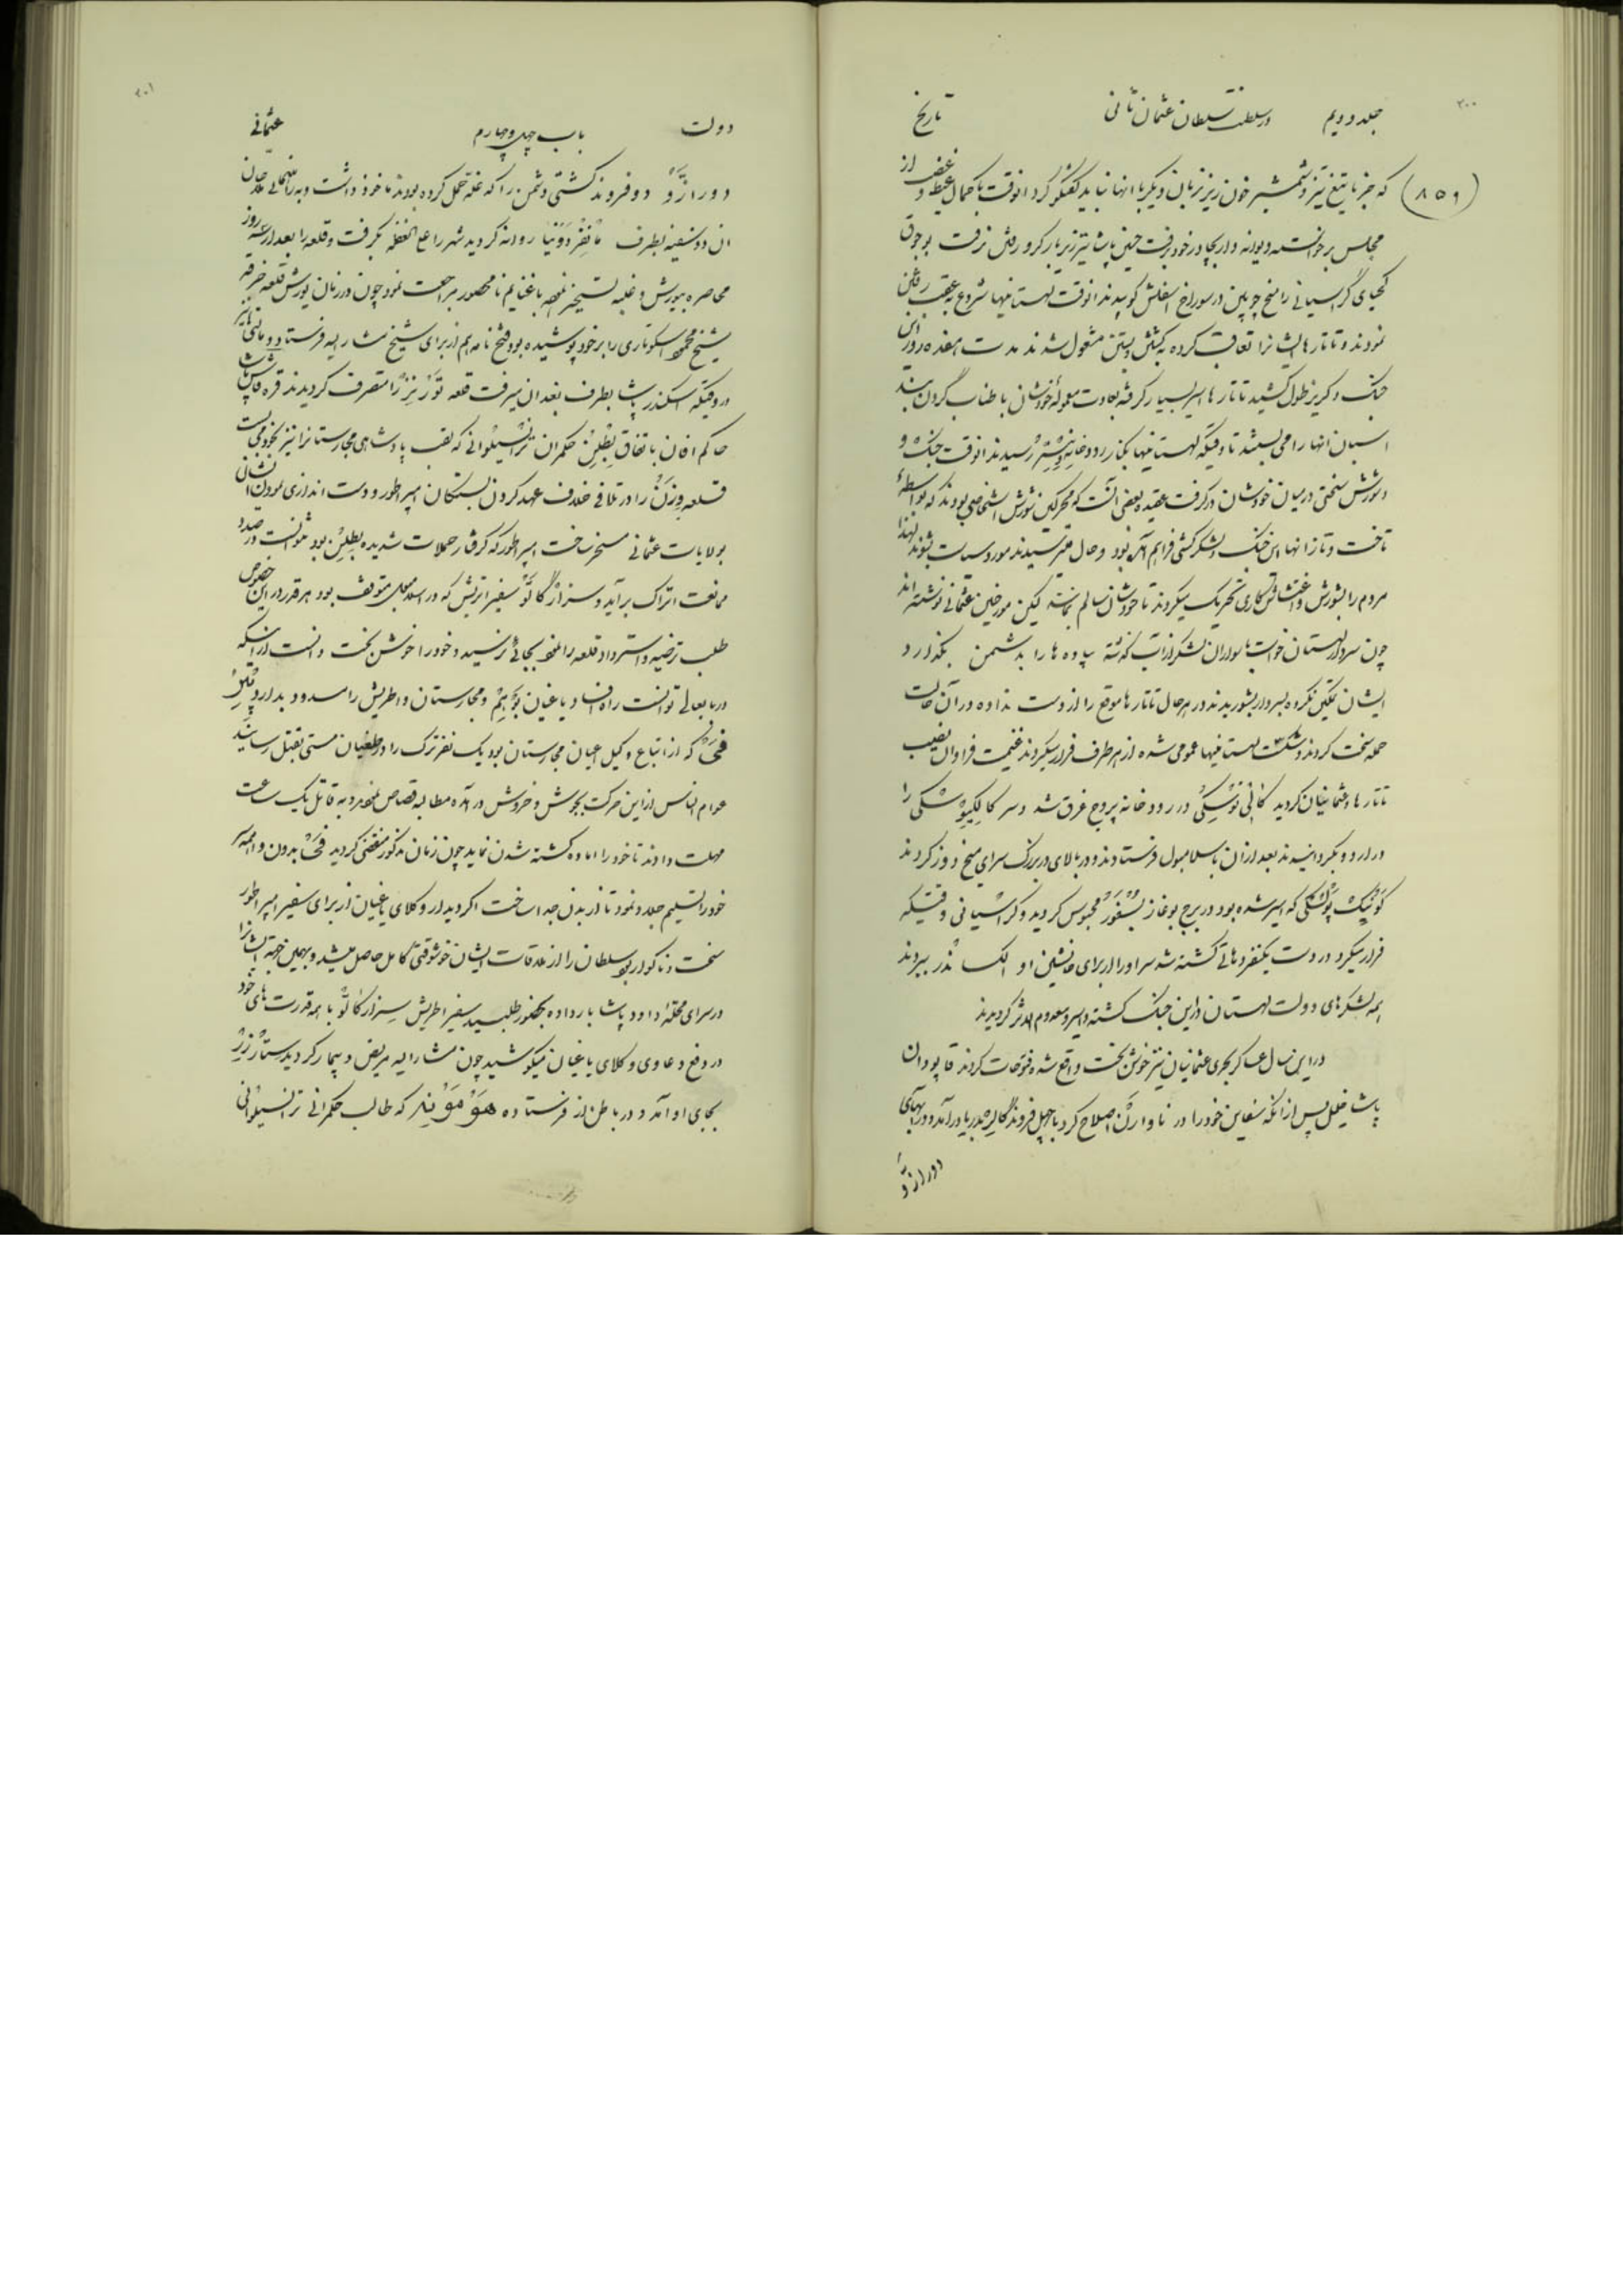 ۲۰۰
جلد دویم در سلطنت سلطان عثمان ثانی تاریخ
(۸۵۹) که جز با تیغ تیز و شمشیر خون ریز بزبان دیگر با انها نباید گفتگو کرد انوقت با کمال غیظ و غضب از
مجلس برخواسته دیوانه وار بجادر خود برفت حسین پاشا نیز زیر بار کرو رفتن نرفت
کحیای گراسیانی را میخ چوبین در سوراخ اسفلش کوبیدند انوقت لهستانیها شروع به عقب رفتن
نمودند و تاتارها ایشانرا تعاقب کرده به کشتن و بستن مشغول شدند مدت هفده روز این
جنگ و گریز طول کشید تاتارها اسیر بسیار گرفته بعادت معموله خودشان با طناب گردن بند
اسبان انها را می بستند تا وقتیکه لهستانیها بکنار رودخانه رسیدند انوقت جنگ و
شورش سختی درمیان خودشان درگرفت عقیده بعضی آنست که محرکین شورش اشخاصی بودند که بواسطهٔ
تاخت و تاز انها این جنگ و لشکرکشی فراهم آمده بود و حال میترسیدند مورد سیاست بشوند لهذا
مردم را بشورش و اغتشاش کاری تحریک میکردند تا خودشان سالم بمانند لیکن مورخین عثمانی نوشته اند
چون سردار لهستان خواست با سواران لشکر از اب گذشته پیاده ها را بدشمن بگذارد
ایشان تمکین نکرده بسردار بشوریدند در هرحال تاتارها موقع را از دست نداده در آن حالت
حمله سخت کردند و شکست لهستانیها عمومی شده از هر طرف فرار میکردند غنیمت فراوان نصیب
تاتارها و عثمانیان گردید در رودخانه پروج غرق شد و سر را
در اردو بگردانیدند بعد از ان باسلامبول فرستادند و در بالای در بزرگ سرای میخ دوز کردند
که اسیر شده بود در برج بوغاز بسفور محبوس گردید و گراسیانی وقتیکه
فرار میکرد در دست یکنفر دهاتی کشته شد سر او را از برای جانشین او الکساندر ببردند
همه لشکرهای دولت لهستان در این جنگ کشته و اسیر و معدوم الاثر گردیدند
در این سال عساکر بحری عثمانیان نیز خوش بخت واقع شده فتوحات کردند قاپودان
پاشا خلیل پس از انکه سفاین خود را در ناوارن اصلاح کرد با چهل فروند گالر بدریا درآمد و در ابهای
دورازّو
۲۰۱
دولت باب چهل و چهارم عثمانی
دورازّو دو فروند کشتی دشمن را که غله حمل کرده بودند ماخوذ داشت و به راهنمائی ملاحان
ان دو سفینه بطرف مانفردونیا روانه گردید شهر را علی الغفله بگرفت و قلعه را بعد از سه روز
محاصره بیورش و غلبه تسخیر نموده با غنایم نامحصور مراجعت نمود چون در زمان یورش قلعه خرقه
شیخ محمود اسکوتاری را بر خود پوشیده بود فتح نامه هم از برای شیخ مشارالیه فرستاد
در وقتیکه اسکندر پاشا بطرف بغدان میرفت قلعه را متصرف گردیدند قره قاش پاشا
حاکم افان باتفاق بطلین حکمران ترانسیلوانی که لقب پادشاهی مجارستانرا نیز بخود می بست
قلعه را در تلافی خلاف عهد کردن بستگان امپراطور و دست اندازی نمودن ایشان
بولایات عثمانی مسخر ساخت امپراطور که گرفتار حملات شدیده بطلین بود نتوانست در صدد
ممانعت اتراک برآید و سزار گالّو سفیر اتریش که در اسلامبول متوقف بود هر قدر در این خصوص
طلب ترضیه و استرداد قلعه را نمود بجائی نرسید و خود را خوش بخت دانست از اینکه
در باب عالی توانست راه افساد یاغیان بوهیم و مجارستان و اطریش را مسدود بدارد
که از اتباع وکیل اعیان مجارستان بود یک نفر ترک را در طغیان مستی بقتل رسانید
عوام الناس از این حرکت بجوش و خروش در آمده مطالبه قصاص نمودند و به قاتل یک ساعت
مهلت دادند تا خود را اماده کشته شدن نماید چون زمان مذکور منقضی گردید بدون واهمه سر
خود را تسلیم جلاد نمود تا از بدن جدا ساخت اگر دیدار وکلای یاغیان از برای سفیر امپراطور
سخت و ناگوار بود سلطان را از ملاقات ایشان خوشوقتی کامل حاصل میشد و بهمین جهة ایشانرا
در سرای محقّر داود پاشا بار داده بحضور طلبید سفیر اطریش سزار گالّو با همه قدرت های خود
در دفع دعاوی وکلای یاغیان میکوشید چون مشارالیه مریض و بیمار گردید
بجای او آمد و در باطن از فرستاده که طالب حکمرانی ترانسیلوانی